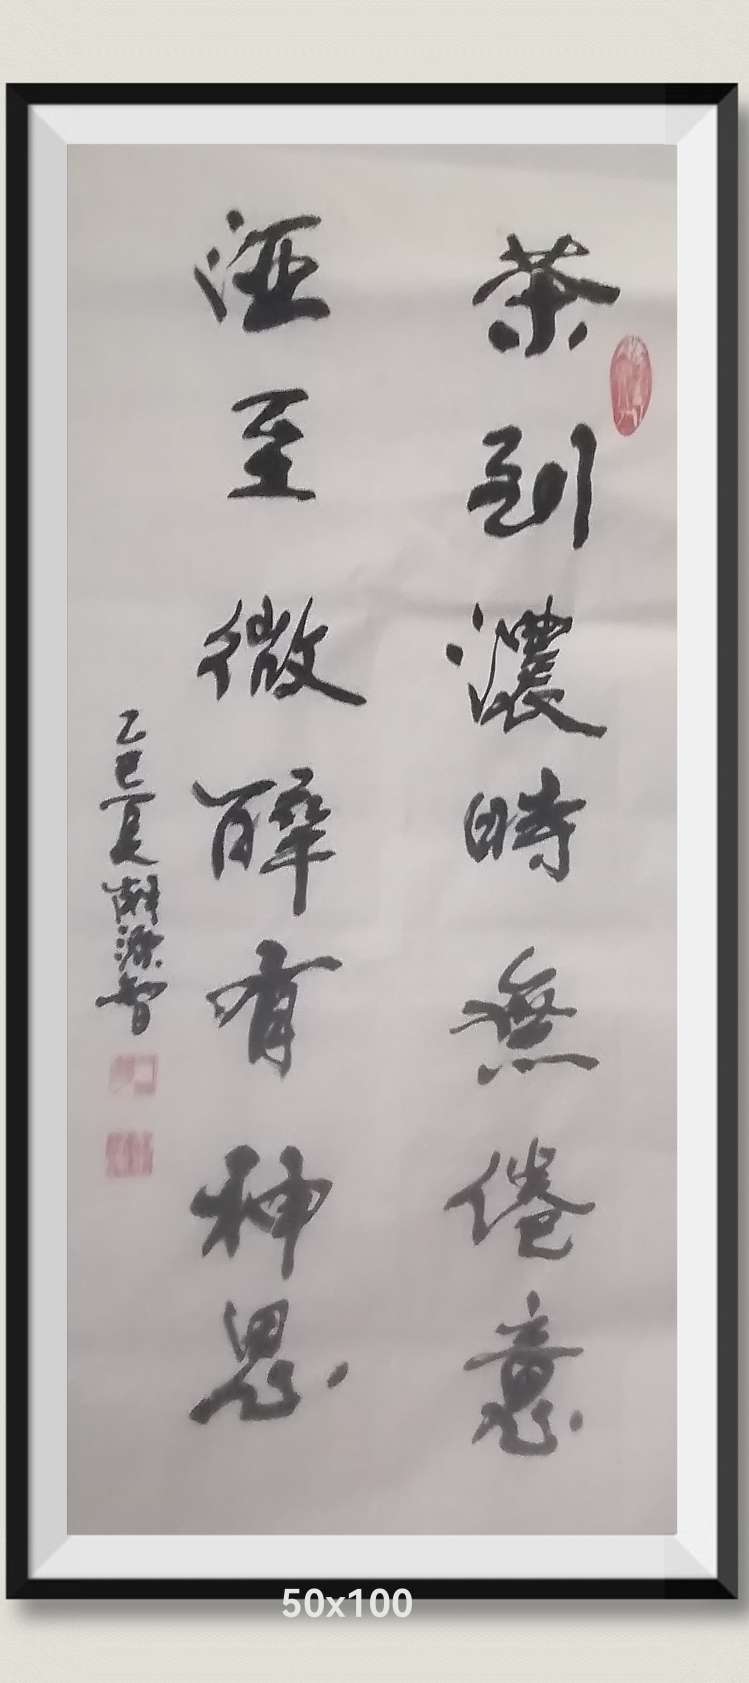 茶到濃時無倦意
酒至微醉有神思
乙巳夏
50x100